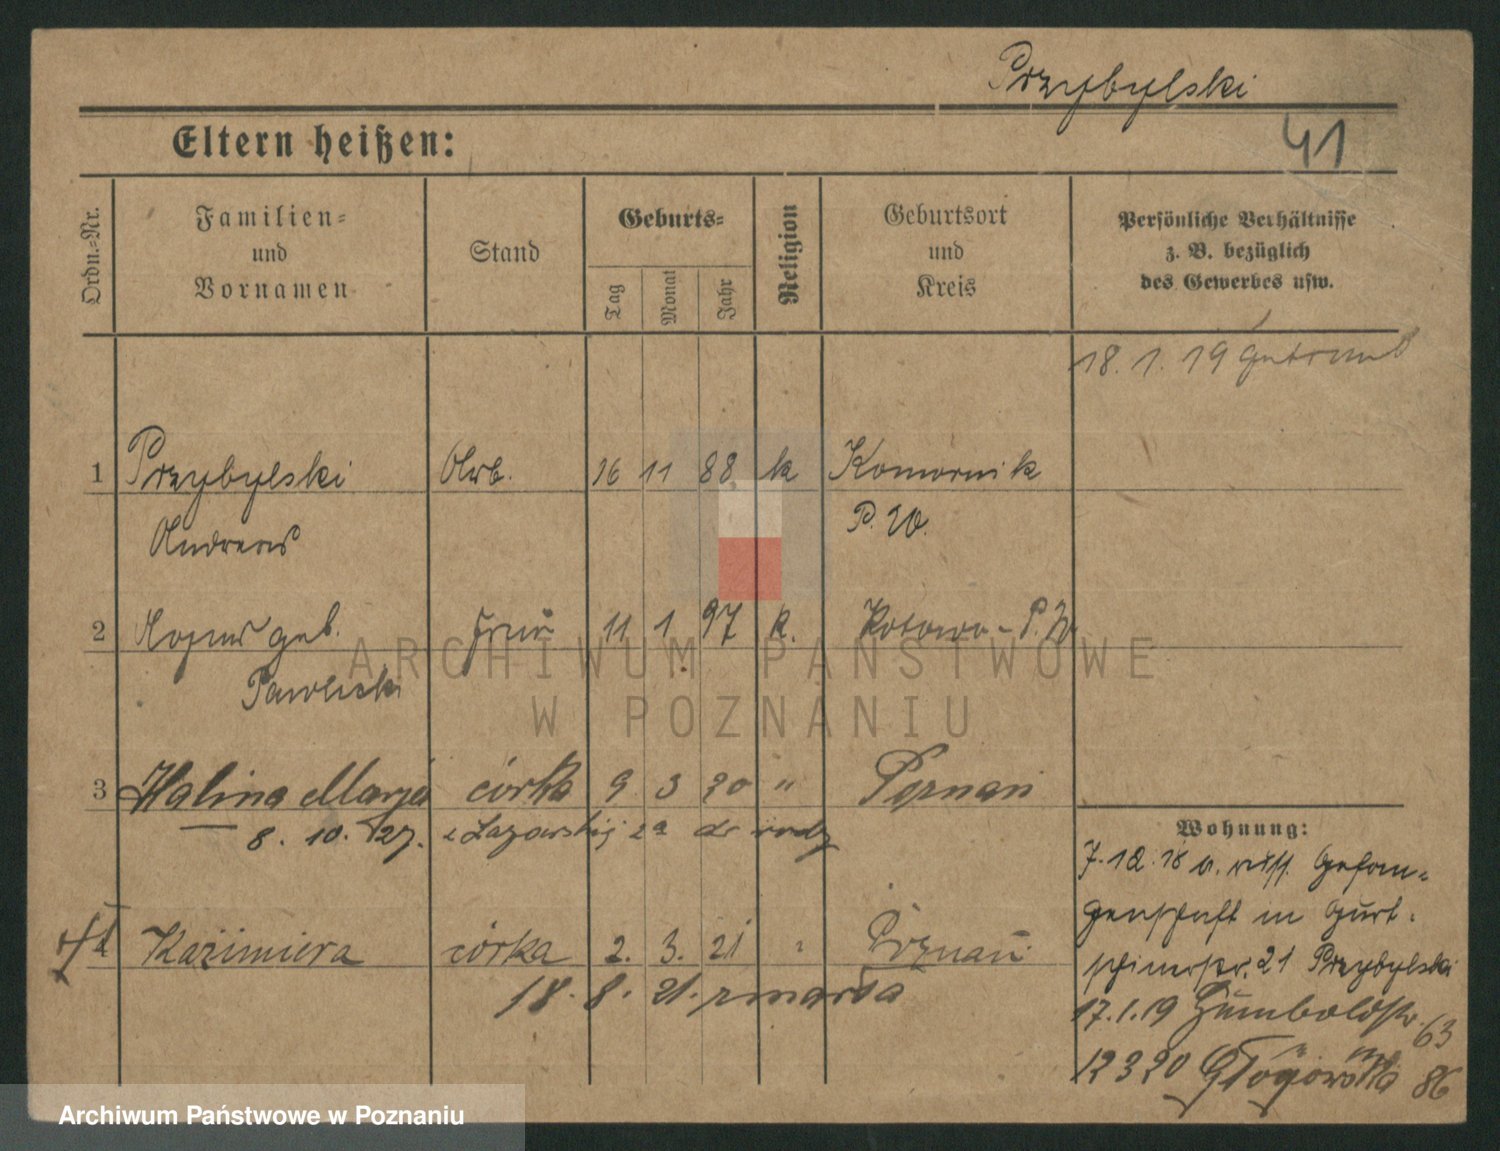 Przybylski
Eltern heißen:
41
Ordn.=Nr.
Familien=
und
Vornamen
Stand
Geburts=
Tag
Monat
Jahr
Religion
Geburtsort
und
Kreis
Persönliche Verhältnisse
z. B. bezüglich
des Gewerbes usw.
18. 1. 19 getraut
1 Przybylski Arb. 16 11 88 k Komornik
Andreas P. W.
2 Agnes geb. Frau 11 1 97 k. Kotowo - P. W
Pawlicki
3 Halina Marja córka 9 3 20 " Poznań
8. 10. 27. z Łazarskiej 2a do
4 Kazimiera córka 2. 3. 21 " Poznań
18. 8. 21. zmarła
Wohnung:
7.12.18 v. russ. Gefan=
genschaft in Gurt=
schinerstr. 21 Przybylski
17.1.19 Humboldstr. 63
12 3 20 Głogowska 86
ARCHIWUM PAŃSTWOWE
W POZNANIU
Archiwum Państwowe w Poznaniu